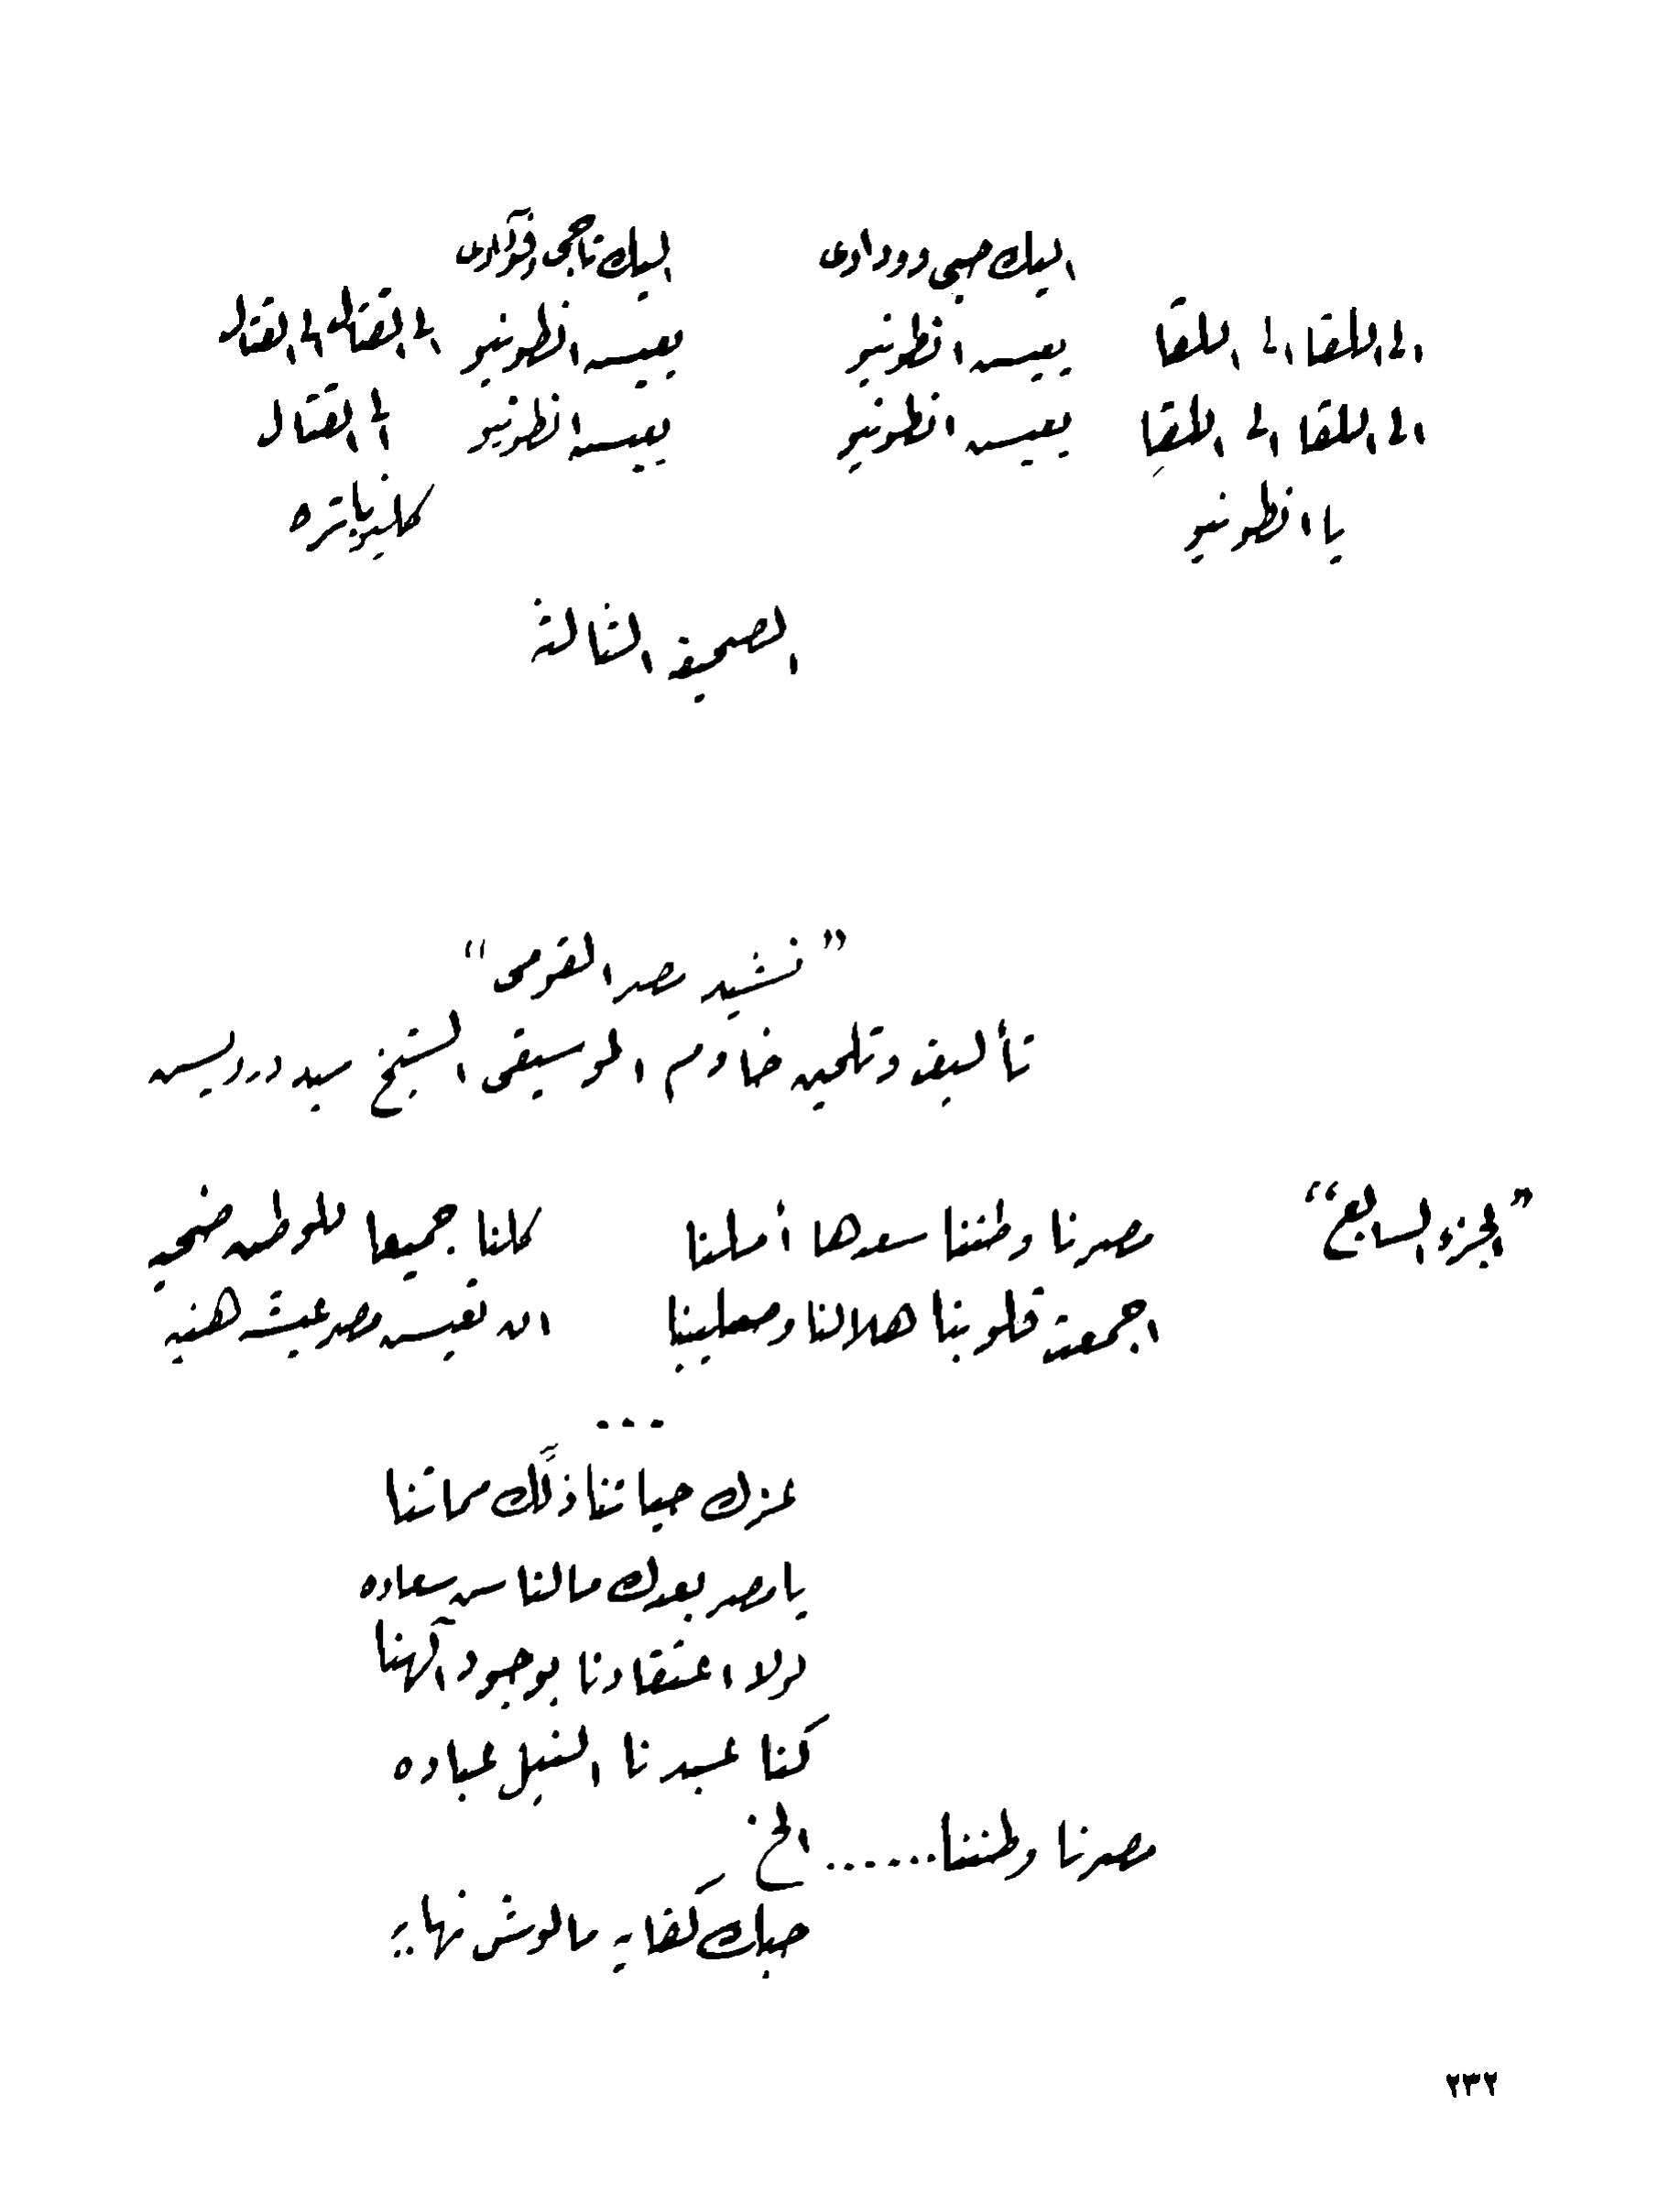 اليك حبى وودادى اليك تاجى وفؤادى
الى اللقا الى اللقا يعيش انطونيو يعيش انطونيو الى القتال الى القتال
الى اللقا الى اللقا يعيش انطونيو يعيش انطونيو الى القتال
يا انطونيو كليوباتره
الصحيفة الثالثة
”نشيد مصر القومى“
تأليف وتلحين خادم الموسيقى الشيخ سيد درويش
”الجزء السابع“ مصرنا وطننا سعدها أملنا كلنا جميعا للوطن ضحيه
اجمعت قلوبنا هلالنا وصليبنا ان تعيش مصر عيشه هنيه
...
عزك حياتنا ذلك مماتنا
يا مصر بعدك مالناس سعاده
لولا اعتقادنا بوجود آلهنا
كنا عبدنا النيل عباده
مصرنا وطننا ...... الخ
حبك كفايه مالوش نهاية
٢٣٢